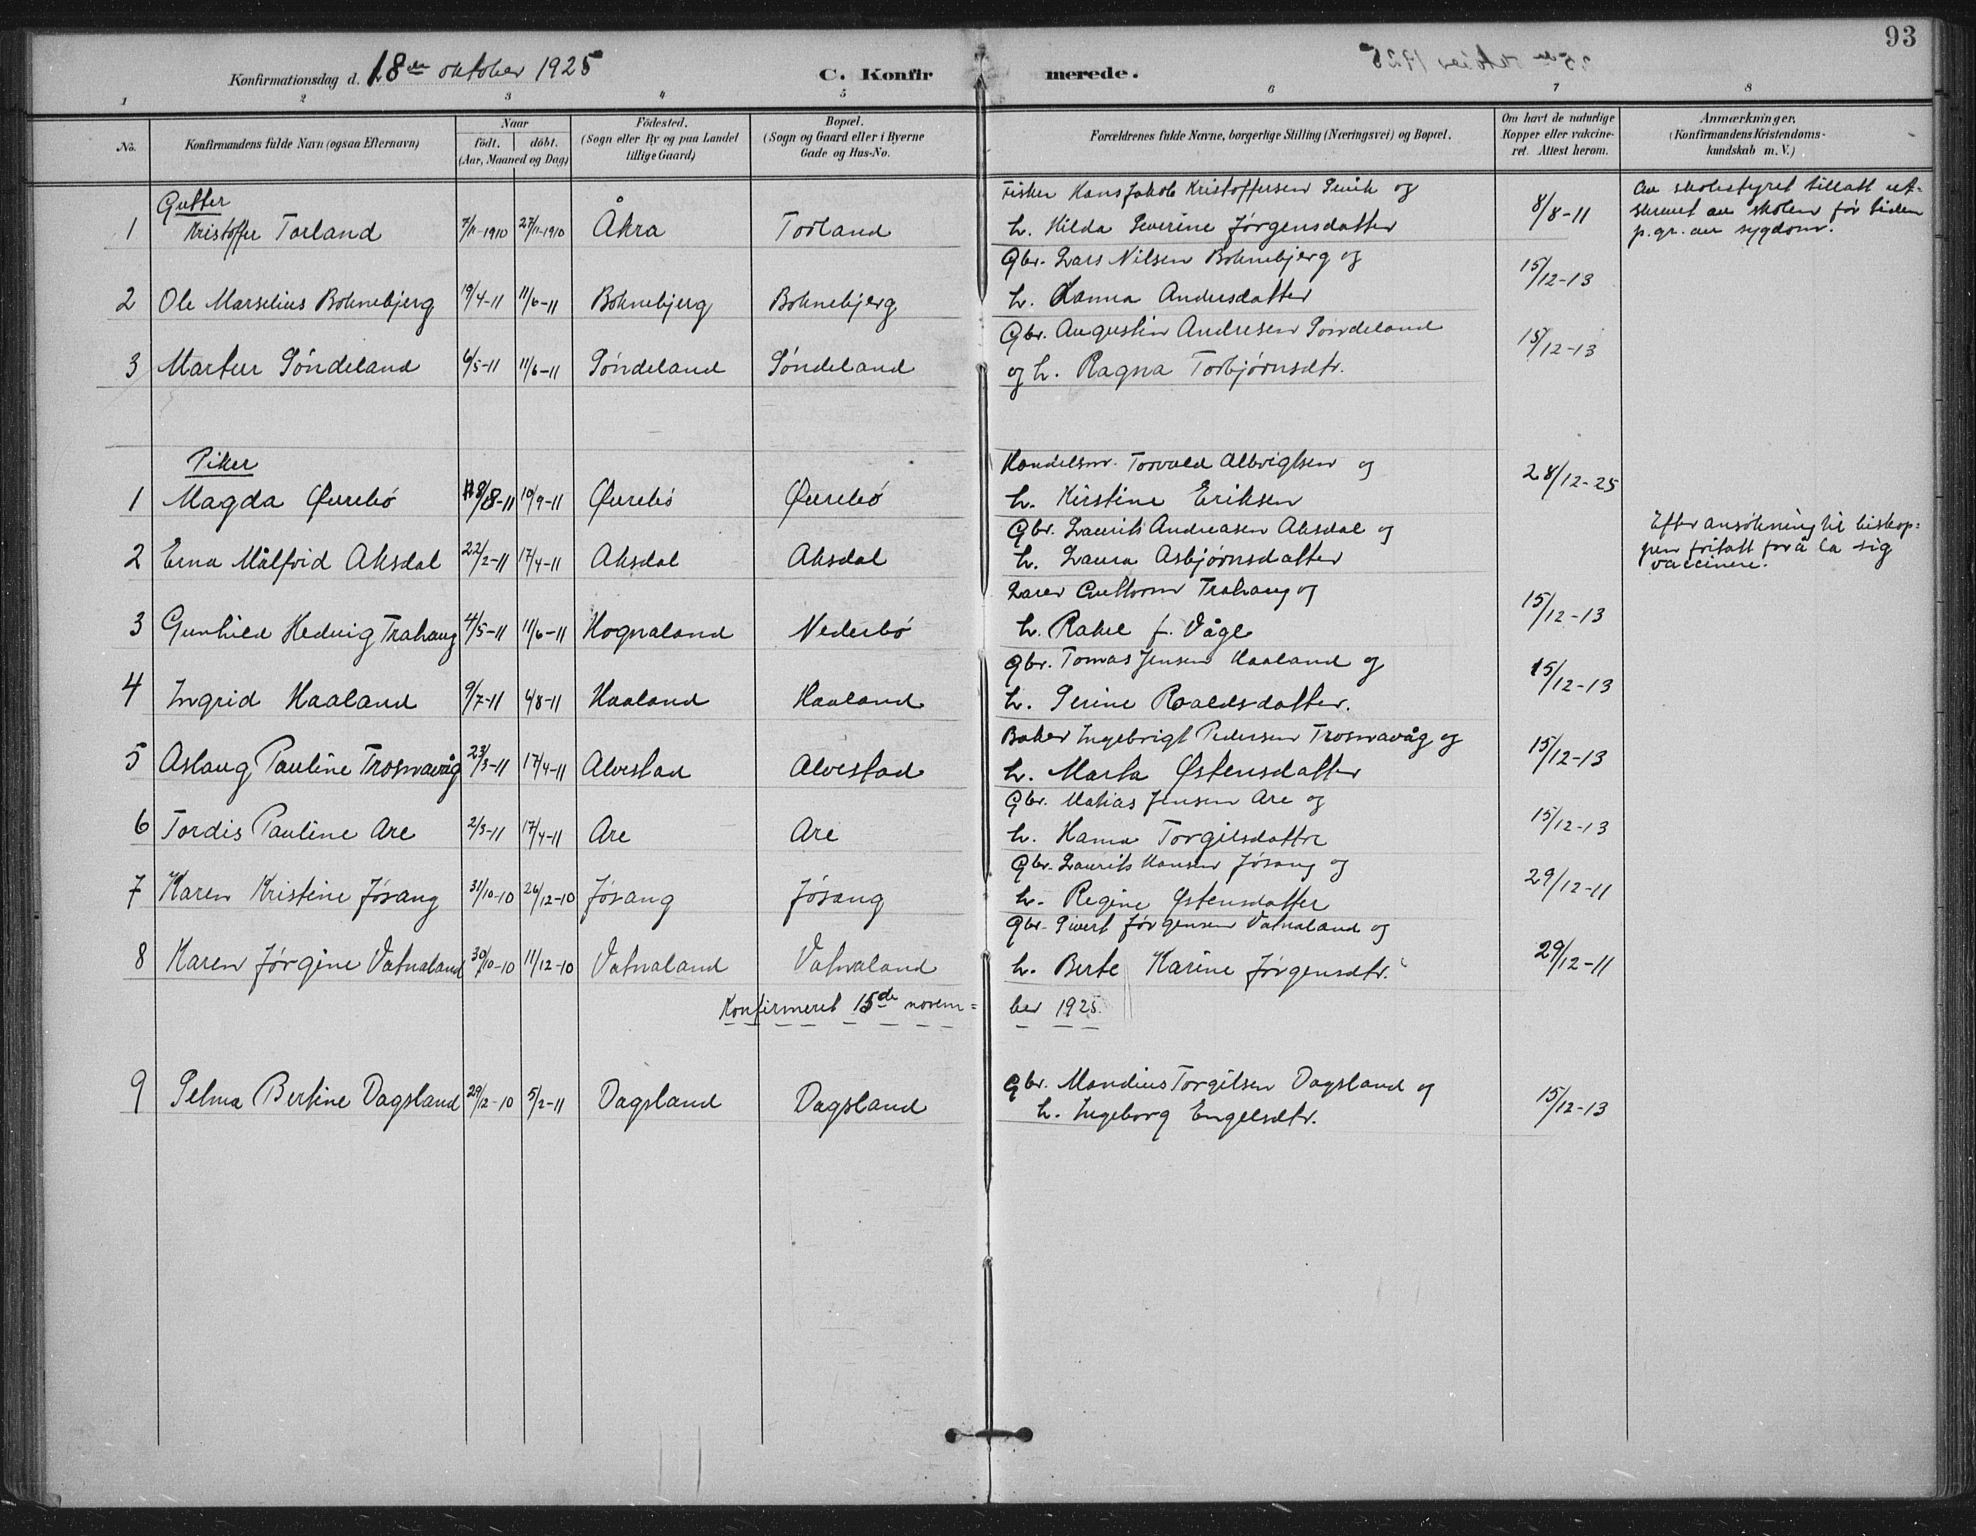 93
Konfirmationsdag d. 18de oktober 1925
C. Konfirmerede.
1 2 3 4 5 6 7 8
No.
Konfirmandens fulde Navn (ogsaa Efternavn)
Naar
født. døbt.
(Aar, Maaned og Dag)
Fødested.
(Sogn eller By og paa Landet
tillige Gaard)
Bopæl.
(Sogn og Gaard eller i Byerne
Gade og Hus-No.
Forældrenes fulde Navne, borgerlige Stilling (Næringsvei) og Bopæl.
Om havt de naturlige
Kopper eller vaccine-
ret. Attest herom.
Anmærkninger.
(Konfirmandens Kristendoms-
kundskab m. V.)
Gutter
Fisker Hans Jakob Kristoffersen og
1 Kristoffer Torland 7/11-1910 27/11-1910 Åkra Torland h. Hilda Severine Jørgensdatter 8/8-11
Av skolestyret tillatt ut-
skrevet av skolen før tiden
p.gr. av sygdom.
Gbr. Lars Nilsen Boknebjerg og
2 Ole Marselius Boknebjerg 19/4-11 11/6-11 Boknebjerg Boknebjerg h. Hanna Andersdatter 15/12-13
Gbr. Augustin Andresen Søndeland
3 Martin Søndeland 6/5-11 11/6-11 Søndeland Søndeland og h. Ragna Torbjørnsdtr. 15/12-13
Piker
Handelsm. Torvald Albrigtsen og
1 Magda Øvrebø 8/8-11 10/9-11 Øvrebø Øvrebø h. Kirstine Eriksen 28/12-25
Gbr. Laurits Andreasen Aksdal og
2 Erna Målfrid Aksdal 22/2-11 17/4-11 Aksdal Aksdal h. Laura Asbjørnsdatter
Efter ansøkning til biskop=
pen fritatt for å la sig
vaccinere.
Lærer Guttorm Trahaug og
3 Gunhild Hedvig Trahaug 4/5-11 11/6-11 Hognaland Nederbø h. Rakel f. Våge 15/12-13
Gbr. Tomas Jensen Haaland og
4 Ingrid Haaland 9/7-11 6/8-11 Haaland Haaland h. Serine Roaldsdatter. 15/12-13
Baker Ingebrigt Pedersen Trosnavåg og
5 Aslaug Pauline Trosnavåg 23/3-11 17/4-11 Alvestad Alvestad h. Marta Østensdatter 15/12-13
Gbr. Matias Jensen Are og
6 Tordis Pauline Are 2/3-11 17/4-11 Are Are h. Hanna Torgilsdattre 15/12-13
Gbr. Laurits Hansen Jøsang og
7 Karen Kristine Jøsang 31/10-10 26/12-10 Jøsang Jøsang h. Regine Østensdatter 29/12-11
Gbr. Sivert Jørgensen Vatnaland og
8 Karen Jørgine Vatnaland 30/10-10 11/12-10 Vatnaland Vatnaland h. Berte Karine Jørgensdtr. 29/12-11
Konfirmeret 15de novem=ber 1925.
Gbr. Mandius Torgilsen Dagsland og
9 Selma Bertine Dagsland 29/12-10 5/2-11 Dagsland Dagsland h. Ingeborg Engelsdtr. 15/12-13